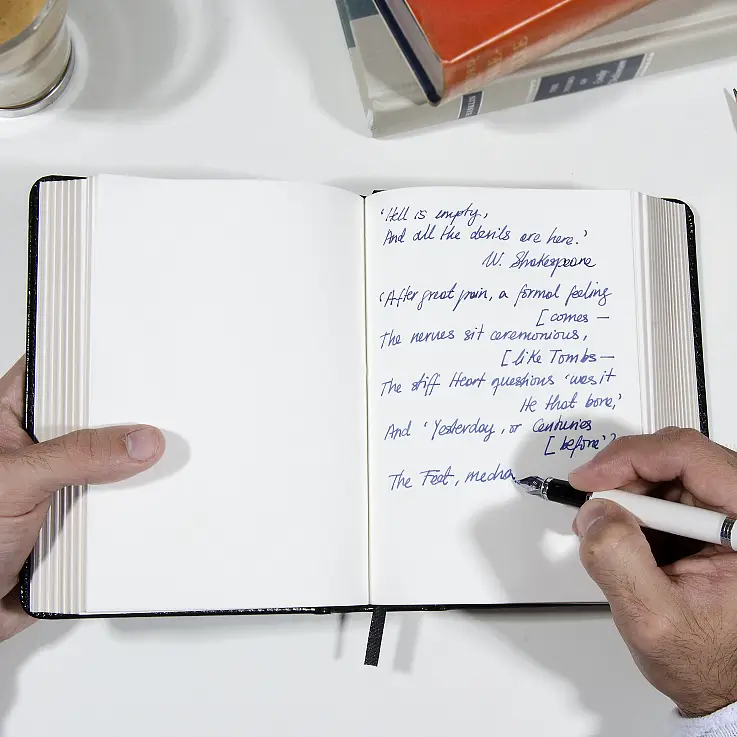 'Hell is empty,
And all the devils are here.'
W. Shakespeare
'After great pain, a formal feeling
[comes —
The nerves sit ceremonious,
[like Tombs —
The stiff Heart questions 'was it
He that bore,'
And 'Yesterday, or Centuries
[before'?
The Feet, mecha